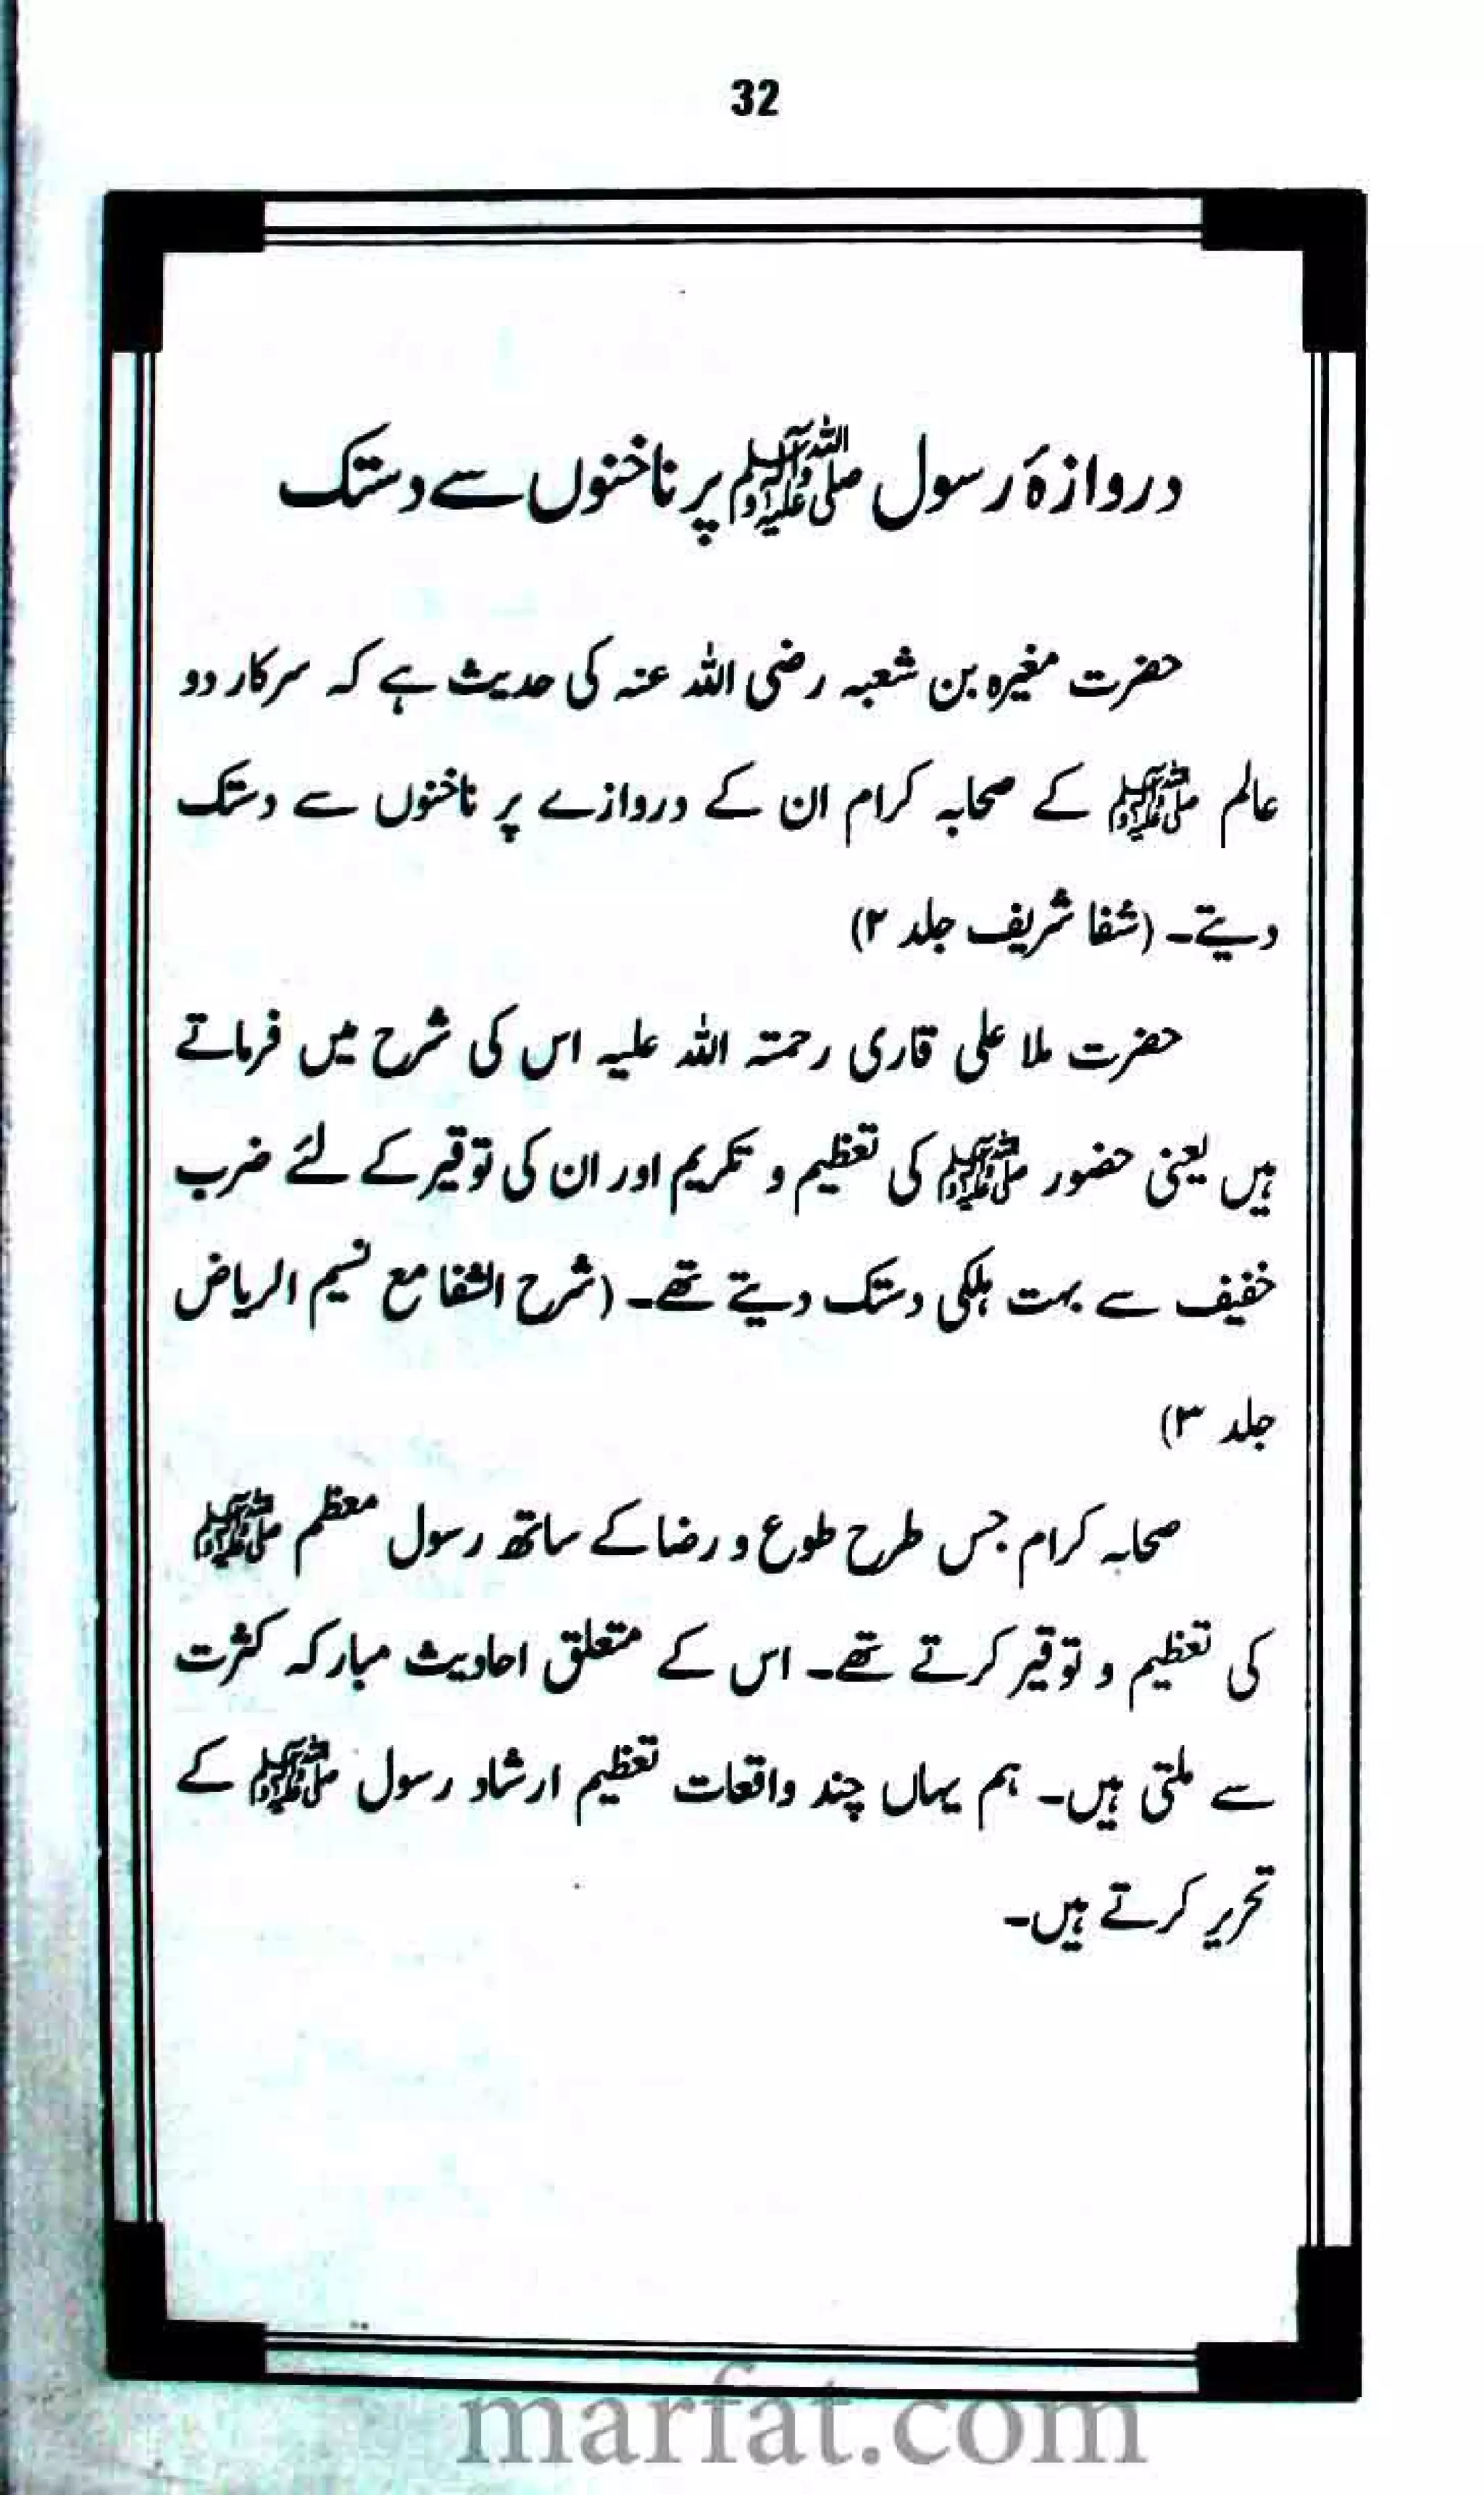 32
دروازۂ رسول ﷺ پر ناخنوں سے دستک
حضرت مغیرہ بن شعبہ رضی اللہ عنہ کی حدیث ہے کہ سرکار دو
عالم ﷺ کے صحابہ کرام ان کے دروازے پر ناخنوں سے دستک
دیتے۔ (شفا شریف جلد ۲)
حضرت ملا علی قاری رحمتہ اللہ علیہ اس کی شرح میں فرماتے
ہیں یعنی حضور ﷺ کی تعظیم و تکریم اور ان کی توقیر کے لئے ضرب
خفیف سے بہت ہلکی دستک دیتے تھے۔ (شرح الشفا مع نسیم الریاض
جلد ۳)
صحابہ کرام جس طرح طوع و رضا کے ساتھ رسول معظم ﷺ
کی تعظیم و توقیر کرتے تھے۔ اس کے متعلق احادیث مبارکہ کثرت
سے ملتی ہیں۔ ہم یہاں چند واقعات تعظیم ارشاد رسول ﷺ کے
تحریر کرتے ہیں۔
marfat.com